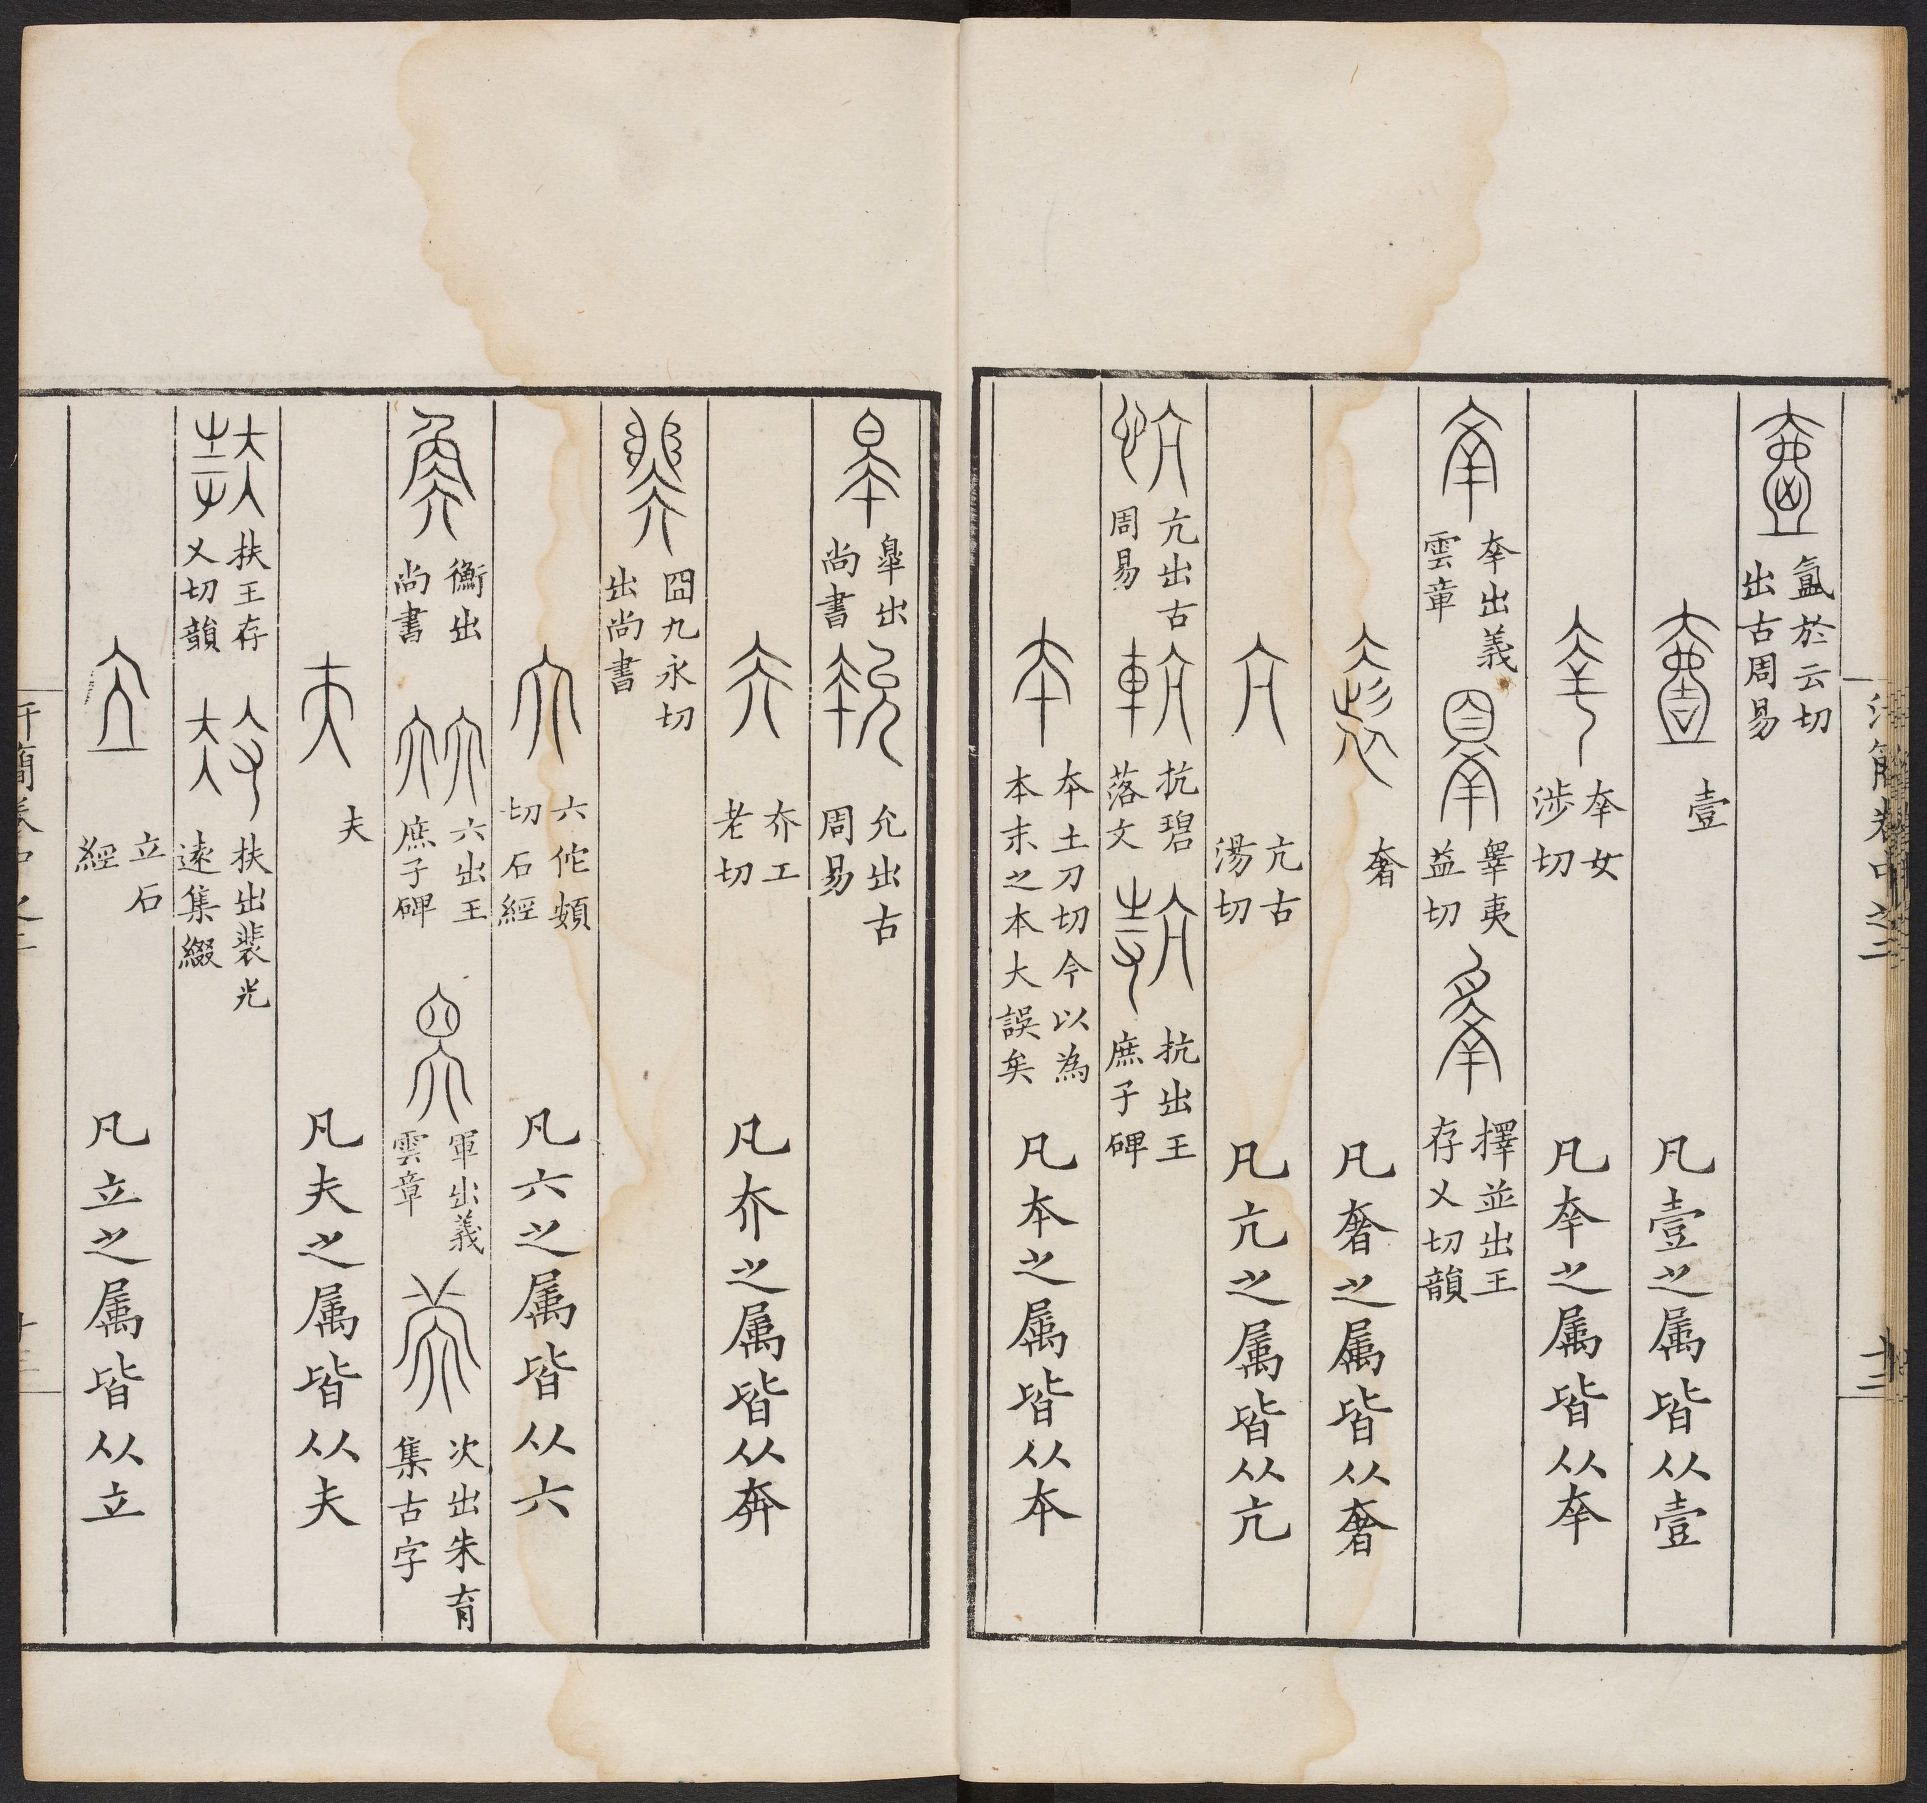 汗簡卷中之二 十二
氳於云切出古周易
壹 凡壹之属皆从壹
㚔女涉切 凡㚔之属皆从㚔
㚔出義雲章 睪夷益切 擇並出王存乂切韻
奢 凡奢之属皆从奢
亢古湯切 凡亢之属皆从亢
亢出古周易 抗碧落文 抗出王庶子碑
夲土刀切今以為本末之本大誤矣 凡夲之属皆从夲
皐出尚書 允出古周易
夰工老切 凡夰之属皆从奔
囧九永切出尚書
六佗切石經 凡六之属皆从六
衡出尚書 六出王庶子碑 軍出義雲章 次出朱育集古字
夫 凡夫之属皆从夫
扶王存乂切韻 扶出裴光遠集綴
立石經 凡立之属皆从立